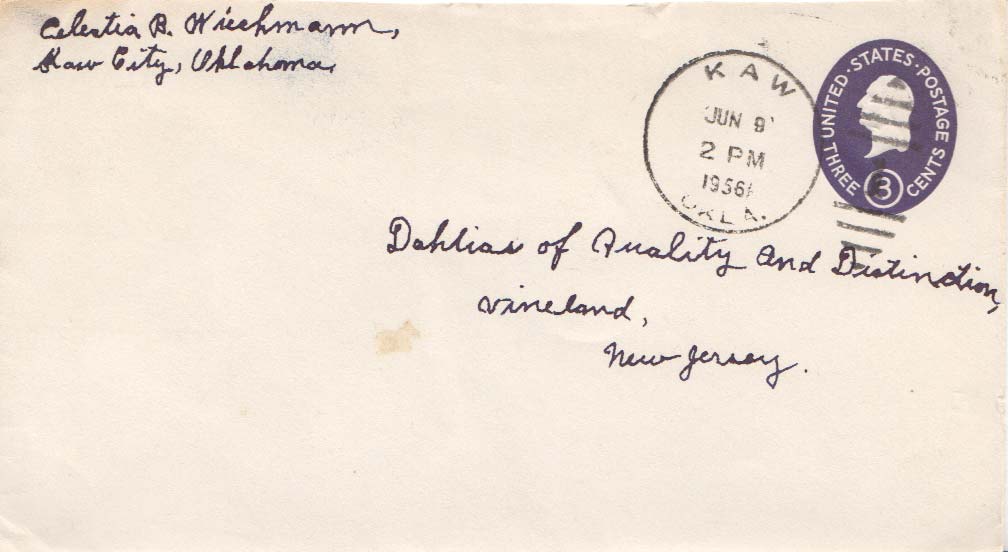 Celestia B. Wiechmann,
Kaw City, Oklahoma,
KAW
JUN 9
2 PM
1956
OKLA.
UNITED · STATES · POSTAGE
THREE 3 CENTS
Dahlias of Quality And Distinction,
Vineland,
New Jersey.